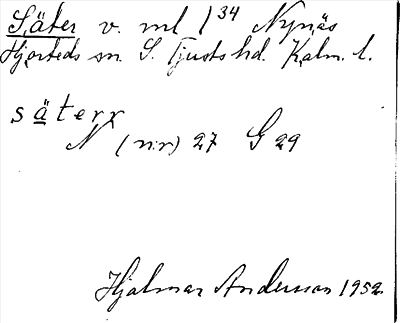 Säter v. ml 1³⁴ Nynäs
Hjorteds sn. S. Tjusts hd. Kalm. l.
säterr
N (n:r) 27 G 29
Hjalmar Andersson 1952